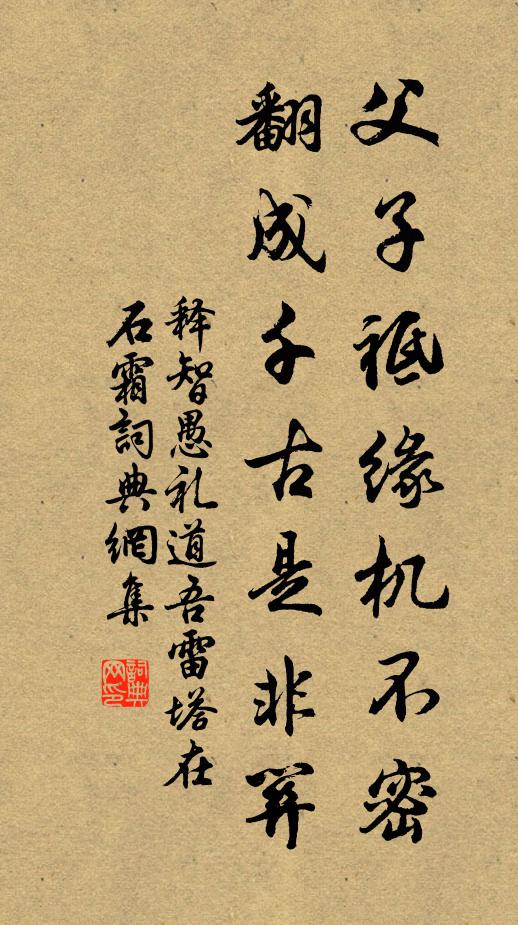 父子祗缘机不密
翻成千古是非关
释智愚礼道吾雷塔在
石霜詞典網集
詞典网印